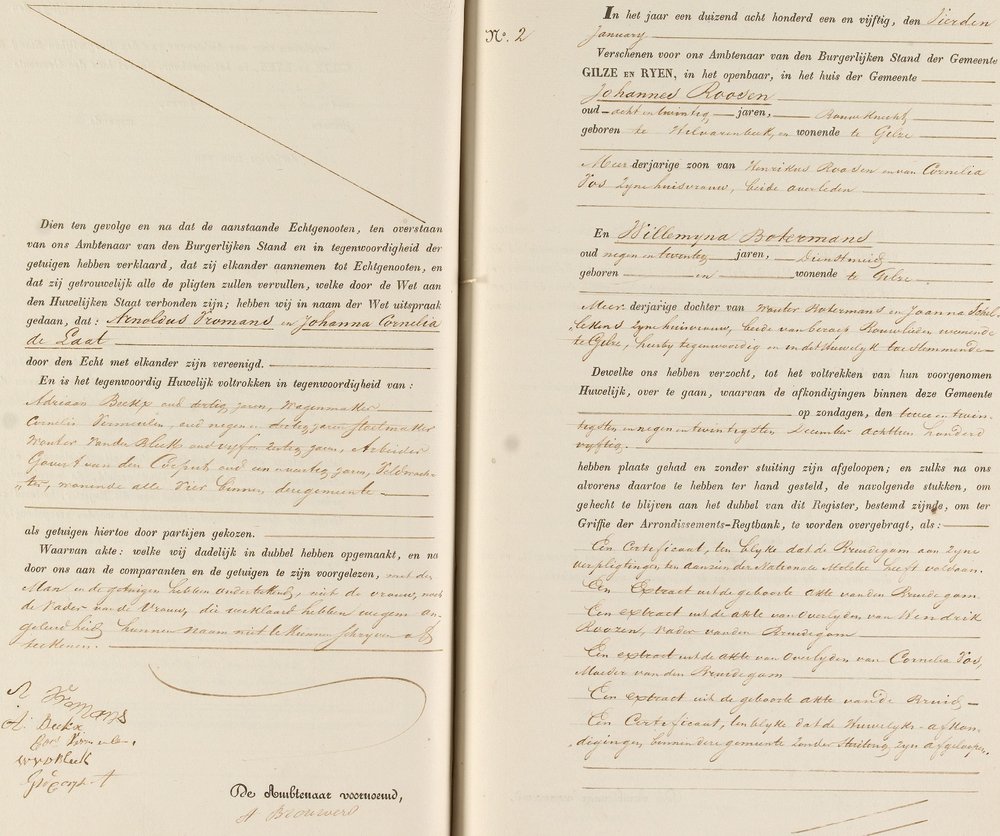 Dien ten gevolge en na dat de aanstaande Echtgenooten, ten overstaan
van ons Ambtenaar van den Burgerlijken Stand en in tegenwoordigheid der
getuigen hebben verklaard, dat zij elkander aannemen tot Echtgenooten, en
dat zij getrouwelijk alle de pligten zullen vervullen, welke door de Wet aan
den Huwelijken Staat verbonden zijn; hebben wij in naam der Wet uitspraak
gedaan, dat: Arnoldus Vromans en Johanna Cornelia
de Laat
door den Echt met elkander zijn vereenigd.
En is het tegenwoordig Huwelijk voltrokken in tegenwoordigheid van:
Adriaan Beekx oud dertig jaren, Wagenmaker
Cornelis Vermeulen, oud negen en dertig jaren
Wouter van der Bleek oud vyf en dertig jaren, Arbeider
Govert van den oud en veertig jaren, Veldwach-
ter, wonende alle vier binnen deze gemeente
als getuigen hiertoe door partijen gekozen.
Waarvan akte: welke wij dadelijk in dubbel hebben opgemaakt, en na
door ons aan de comparanten en de getuigen te zijn voorgelezen, met den
Man en de getuigen hebben onderteekend, niet de vrouw, noch
de Vader van de Vrouw, die verklaard hebben wegens on-
geleerdheid hunnen naam niet te kunnen schryven of
teekenen.
A Vromans
A. Beekx
Cor. Vermeulen
W v d Bleek
De Ambtenaar voornoemd,
A Brouwers
No. 2
In het jaar een duizend acht honderd een en vijftig, den Vierden
January
Verschenen voor ons Ambtenaar van den Burgerlijken Stand der Gemeente
GILZE EN RYEN, in het openbaar, in het huis der Gemeente
Johannes Roosen
oud acht en twintig jaren, Bouwknecht,
geboren te Hilvarenbeek, en wonende te Gilze
Meerderjarige zoon van Henrikus Roosen en van Cornelia
Vos zyne huisvrouw, beide overleden
En Willemyna Botermans
oud negen en twintig jaren, Dienstmeid
geboren en wonende te Gilze
Meerderjarige dochter van Wouter Botermans en Joanna Schel-
lekens zyne huisvrouw, beide van beroep Bouwlieden wonende
te Gilze, hierby tegenwoordig en in dit Huwelyk toestemmende
Dewelke ons hebben verzocht, tot het voltrekken van hun voorgenomen
Huwelijk, over te gaan, waarvan de afkondigingen binnen deze Gemeente
op zondagen, den twee en twin-
tigsten en negen en twintigsten December achttien honderd
vyftig
hebben plaats gehad en zonder stuiting zijn afgeloopen; en zulks na ons
alvorens daartoe te hebben ter hand gesteld, de navolgende stukken, om
gehecht te blijven aan het dubbel van dit Register, bestemd zijnde, om ter
Griffie der Arrondissements-Regtbank, te worden overgebragt, als:
Een Certeficaat, ten blyke dat de Bruidegom aan zyne
verpligtingen ten aanzien der Nationale Militie heeft voldaan.
Een Extract uit de geboorte akte van den Bruidegom
Een extract uit de akte van overlyden van Hendrik
Roozen, vader van den Bruidegom
Een extract uit de akte van overlyden van Cornelia Vos,
Moeder van den Bruidegom
Een extract uit de geboorte akte van de Bruid
En Certeficaat, ten blyke dat de Huwelyks-afkon-
digingen binnen deze gemeente zonder stuiting zyn afgeloopen.